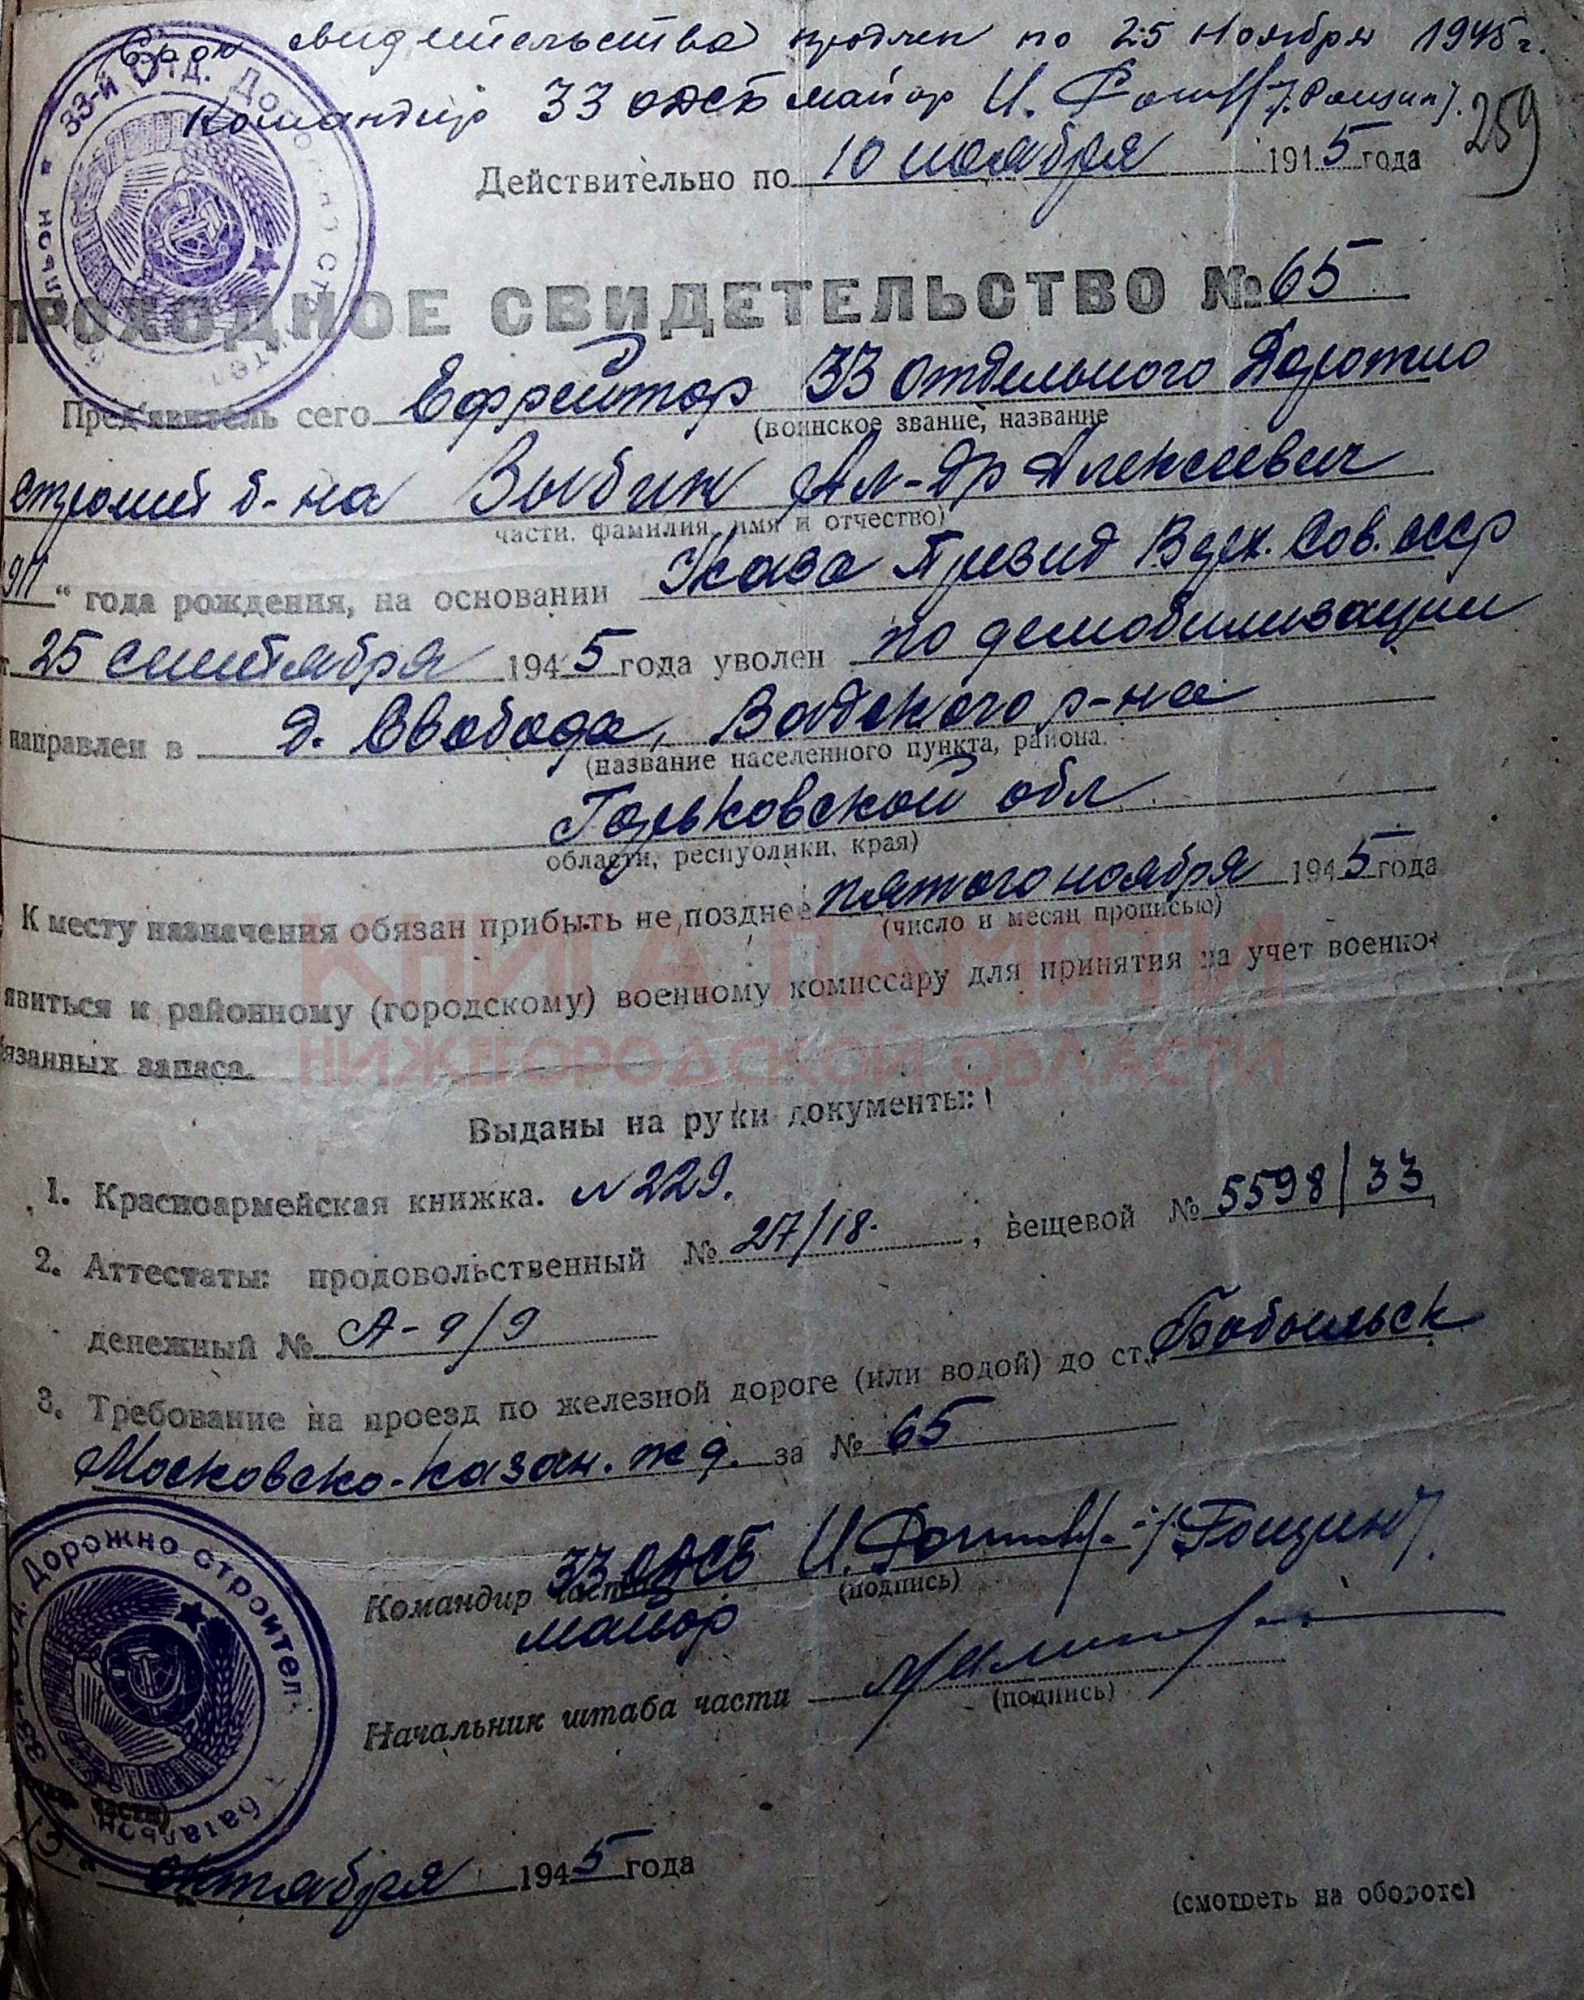 Срок свидетельства продлен по 25 Ноября 1945 г.
Командир 33 ОДСБ майор И. (Рощин).
259
Действительно по 10 ноября 1945 года
ПРОХОДНОЕ СВИДЕТЕЛЬСТВО № 65
Пред'явитель сего Ефрейтор 33 отдельного Дорожно
(воинское звание, название
строит б-на Зыбин Ал-др Алексеевич
части, фамилия, имя и отчество)
911 " года рождения, на основании Указа Презид Верх. Сов. СССР
т 25 сентября 1945 года уволен по демобилизации
направлен в д. Свобода, Вадского р-на
(название населенного пункта, района,
Горьковской обл
области, республики, края)
К месту назначения обязан прибыть не позднее пятого ноября 1945 года
(число и месяц прописью)
явиться к районному (городскому) военному комиссару для принятия на учет военно-
бязанных запаса.
КНИГА ПАМЯТИ
НИЖЕГОРОДСКОЙ ОБЛАСТИ
Выданы на руки документы:
1. Красноармейская книжка. № 229.
2. Аттестаты: продовольственный № 27/18. , вещевой № 5598/33,
денежный № А-9/9
3. Требование на проезд по железной дороге (или водой) до ст. Бобыльск
Московско-казан. ж д. за № 65
Командир части 33 ОДСБ И. /Рощин/
(подпись)
майор
Начальник штаба части
(подпись)
33-й Отд. Дорожно строител. батальон
части)
" октября 1945 года
(смотреть на обороте)